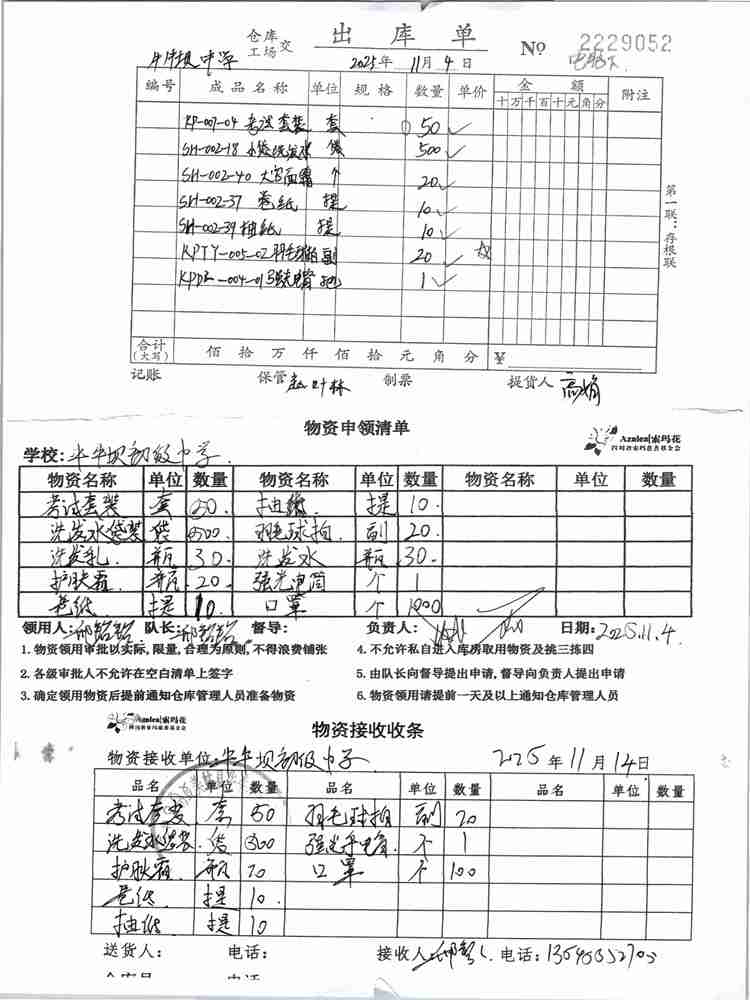 仓库
工场 交 出库单 № 2229052
2025年 11月 4日
编号 成品名称 单位 规格 数量 单价 金额 附注
十万千百十元角分
KP-007-04 考试套装 套 50
SH-002-18 水袋洗发水 袋 500
SH-002-40 大宝面霜 个 20
SH-002-37 卷纸 提 10
SH-002-39 抽纸 提 10
KPTY-005-02 羽毛球拍 副 20
1
第一联:存根联
合计(大写) 佰拾万仟佰拾元角分 ¥
记账 保管 赵叶林 制票 提货人 高娟
物资申领清单
Azalea|索玛花
四川省索玛慈善基金会
学校:半半坝初级中学.
物资名称 单位 数量 物资名称 单位 数量 物资名称 单位 数量
考试套装 套 50. 抽纸. 提 10.
洗发水袋装 袋 500. 羽毛球拍. 副 20.
洗发乳. 瓶 30. 洗发水 瓶 30.
护肤霜 瓶 20. 强光电筒 个 1
卷纸 提 10. 口罩 个 1000
领用人: 队长: 督导: 负责人: 日期:2025.11.4.
1.物资领用审批以实际,限量,合理为原则,不得浪费铺张 4.不允许私自进入库房取用物资及挑三拣四
2.各级审批人不允许在空白清单上签字 5.由队长向督导提出申请,督导向负责人提出申请
3.确定领用物资后提前通知仓库管理人员准备物资 6.物资领用请提前一天及以上通知仓库管理人员
Azalea|索玛花
四川省索玛慈善基金会
物资接收收条
物资接收单位:半半坝初级中学 2025年11月14日
品名 单位 数量 品名 单位 数量 品名 单位 数量
考试套装 套 50 羽毛球拍 副 20
洗发水袋装. 袋 500 强光手电筒. 个 1
护肤霜. 瓶 20 口罩 个 100
卷纸. 提 10.
抽纸 提 10
送货人: 电话: 接收人: 电话: